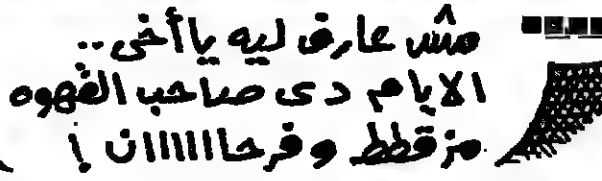 مش عارف ليه يا أخى..
الايام دى صاحب القهوه
مزقطط وفرحاااااان !